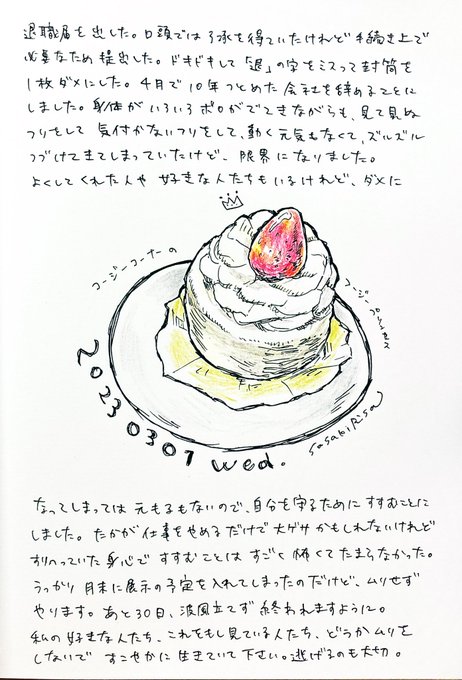 退職届を出した。口頭では了承を得ていたけれど手続き上で
必要なため提出した。ドキドキして「退」の字をミスって封筒を
1枚ダメにした。4月で10年つとめた会社を辞めることに
しました。身体がいろいろボロがでてきながらも、見て見ぬ
フリをして気付かないフリをして、動く元気もなくて、ズルズル
つづけてきてしまっていたけど、限界になりました。
よくしてくれた人や好きな人たちもいるけれど、ダメに
コージーコーナーの
コージー
20230301 wed.
SasakiRisa
なってしまっては元も子もないので、自分を守るためにすすむことに
しました。たかが仕事をやめるだけで大ゲサかもしれないけれど
すりへっていた身心ですすむことはすごく怖くてたまらなかった。
うっかり月末に展示の予定を入れてしまったのだけど、ムリせず
やります。あと30日、波風立てず終われますように。
私の好きな人たち、これをもし見ている人たち、どうかムリを
しないですこやかに生きていて下さい。逃げるのも大切。